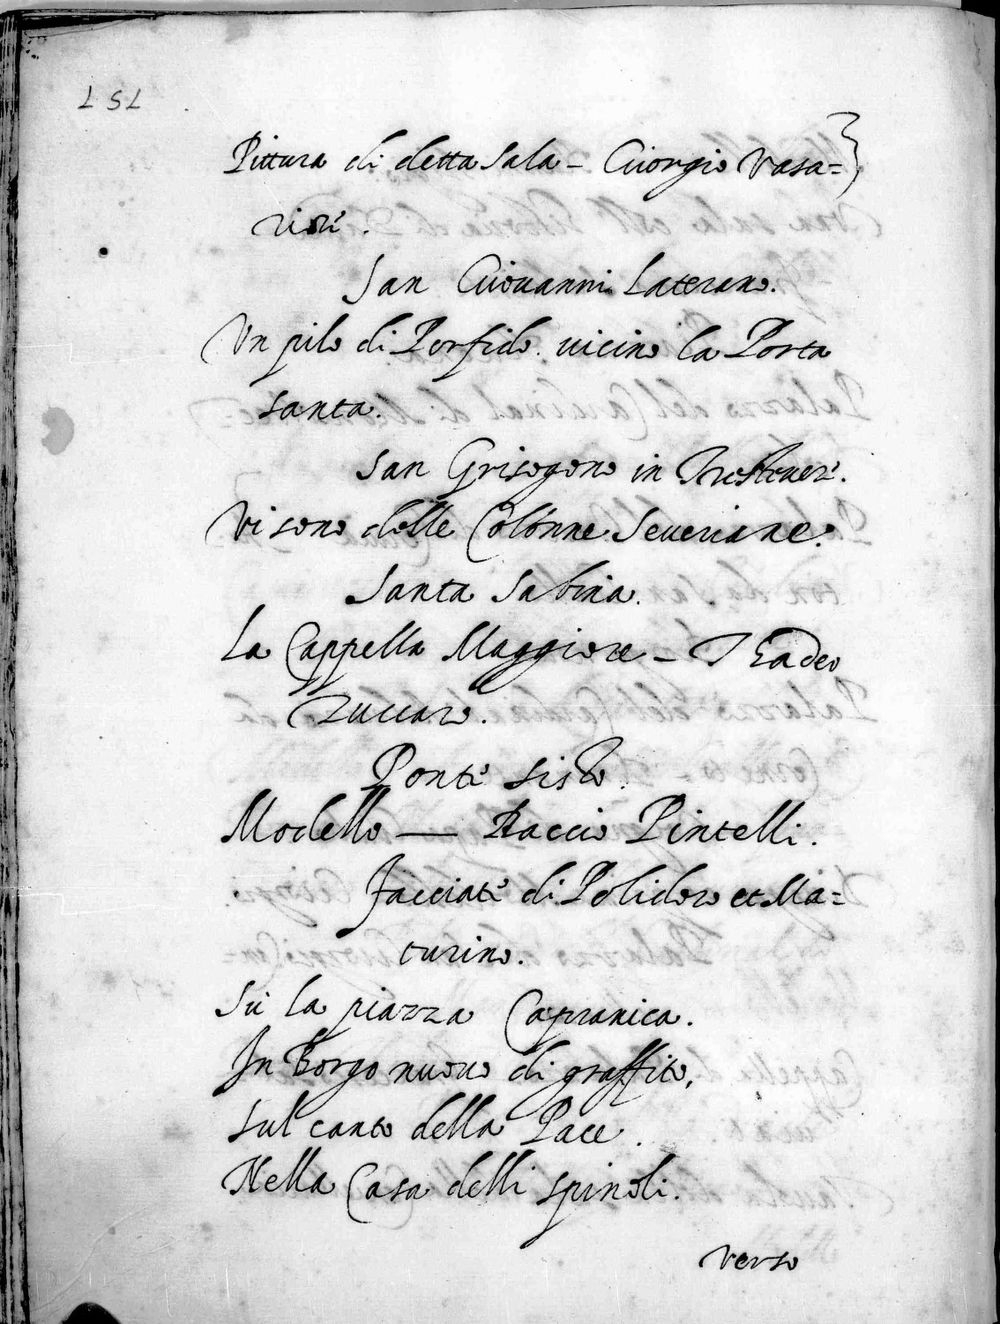 757
Pittura di detta sala - Giorgio Vasa=
riori.
San Giouanni Laterano.
Un pilo di Porfido. uicino la Porta
santa.
San Grisogono in Trasteueri.
Vi sono delle Colonne Seueriane.
Santa Sabina.
La Cappella Maggiore - Tadeo
Zuccaro.
Ponte Sisto.
Modello — Baccio Pintelli.
Facciate di Polidoro et Ma=
turino.
Sù la piazza Capranica.
In Borgo nuouo di graffito,
Sul canto della Pace.
Nella Casa delli spinoli.
verso